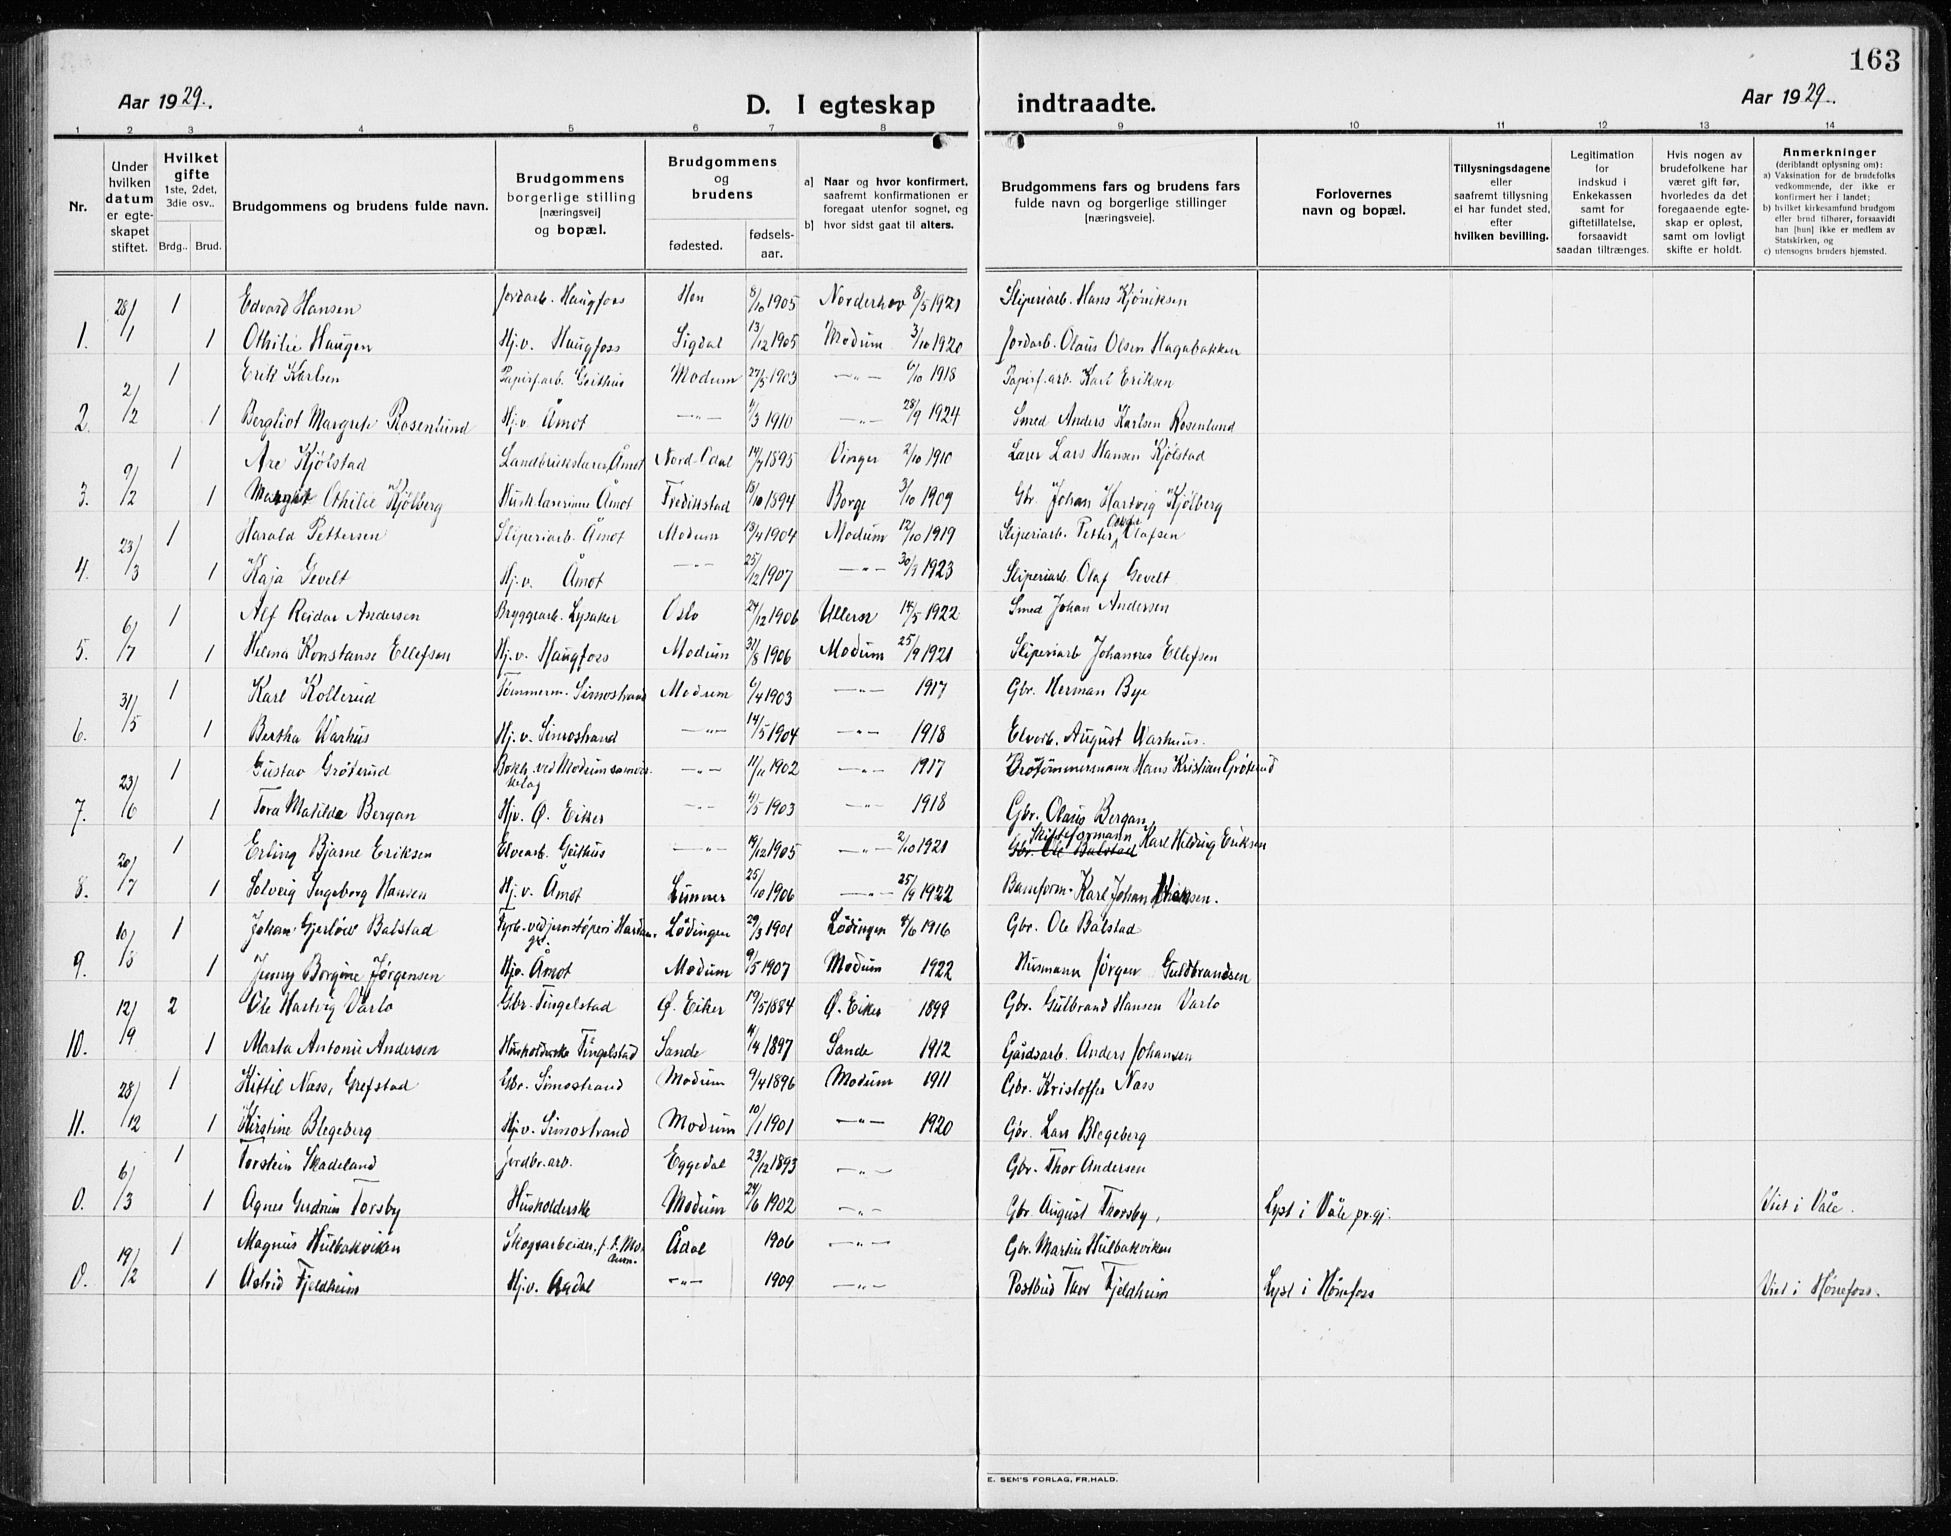 163
Aar 1929. D. I egteskap indtraadte. Aar 1929.
1 2 3 4 5 6 7 8 9 10 11 12 13 14
Nr.
Under hvilken datum er egteskapet stiftet.
Hvilket gifte 1ste, 2det, 3die osv..
Brdg.. Brud.
Brudgommens og brudens fulde navn.
Brudgommens borgerlige stilling [næringsvei] og bopæl.
Brudgommens og brudens
fødested. fødsels-aar.
a) Naar og hvor konfirmert, saafremt konfirmationen er foregaat utenfor sognet, og
b) hvor sidst gaat til alters.
Brudgommens fars og brudens fars fulde navn og borgerlige stillinger [næringsveie].
Forlovernes navn og bopæl.
Tillysningsdagene eller saafremt tillysning ei har fundet sted, efter hvilken bevilling.
Legitimation for indskud i Enkekassen samt for giftetillatelse, forsaavidt saadan tiltrænges.
Hvis nogen av brudefolkene har været gift før, hvorledes da det foregaaende egteskap er opløst, samt om lovligt skifte er holdt.
Anmerkninger (deriblandt oplysning om):
a) Vaksination for de brudefolks vedkommende, der ikke er konfirmert her i landet;
b) hvilket kirkesamfund brudgom eller brud tilhører, forsaavidt han [hun] ikke er medlem av Statskirken, og
c) utensogns bruders hjemsted.
28/1 1 Edvard Hansen Jordarb. Haugfoss Hen 8/10 1905 Norderhov 8/5 1921 Sliperiarb. Hans Kjöniksen
1. 1 Othilie Haugen Hj.v. Haugfoss Sigdal 13/12 1905 Modum 3/10 1920 Jordarb. Olaus Olsen Hagabakken
2/2 1 Erik Karlsen Papirf.arb. Geithus Modum 27/5 1903 -"- 6/10 1918 Papirf.arb. Karl Eriksen
2. 1 Bergliot Margrete Rosenlund Hj.v. Åmot -"- 11/3 1910 -"- 28/9 1924 Smed Anders Karlsen Rosenlund
9/2 1 Are Kjölstad Landbrukslærer, Åmot Nord-Odal 14/7 1895 Vinger 2/10 1910 Lærer Lars Hansen Kjölstad
3. 1 Margit Othilie Kjölberg Husk.lærerinne Åmot Fredikstad 15/10 1894 Borge 3/10 1909 Gbr. Johan Hartvig Kjölberg
23/3 1 Harald Pettersen Sliperiarb. Åmot Modum 13/4 1904 Modum 12/10 1919 Sliperiarb. Petter Olafsen
4. 1 Kaja Gevelt Hj.v. Åmot -"- 25/12 1907 -"- 30/9 1923 Sliperiarb. Olaf Gevelt
6/7 1 Alf Reidar Andersen Bryggearb. Lysaker Oslo 27/12 1906 Ullern 14/5 1922 Smed Johan Andersen
5. 1 Helma Konstanse Ellefsen Hj.v. Haugfoss Modum 31/8 1906 Modum 25/9 1921 Sliperiarb Johannes Ellefsen
31/5 1 Karl Kollerud Tømmerm. Simostrand Modum 6/4 1903 -"- 1917 Gbr. Herman Bye
6. 1 Bertha Aashus Hj.v. Simostrand -"- 14/5 1904 -"- 1918 Elvarb. August Aashus.
23/6 1 Gustav Grøterud Bokh. ved Modum samvirkelag -"- 11/11 1902 -"- 1917 Brotømmermann Hans Kristian Grøterud
7. 1 Tora Matilde Bergan Hjv. Ø. Eiker -"- 4/5 1903 -"- 1918 Gbr. Olaus Bergan.
20/7 1 Erling Bjarne Eriksen Elvearb. Geithus -"- 19/12 1905 -"- 2/10 1921 Gbr. Ole Balstad Skifteformann Karl Hilding Eriksen
8. 1 Solveig Ingeborg Hansen Hj.v. Åmot Lunner 25/10 1906 -"- 25/9 1922 Baneform. Karl Johan Hansen.
10/8 1 Johan Gjerløw Balstad Fyrb. ved jernstøperi Lødingen 29/3 1901 Lødingen 4/6 1916 Gbr. Ole Balstad
9. 1 Jenny Borgine Jørgensen Hjv. Åmot Modum 9/5 1907 Modum 1922 Husmann Jørgen Guldbrandsen
12/9 2 Ole Hartvig Varlo Gbr. Tingelstad Ø. Eiker 19/5 1884 Ø. Eiker 1899 Gbr. Gulbrand Hansen Varlo
10. 1 Marta Antonie Andersen Husholderske Tingelstad Sande 4/4 1897 Sande 1912 Gårdsarb. Anders Johansen
28/12 1 Kittil Nass, Grefstad Gbr. Simostrand Modum 9/4 1896 Modum 1911 Gbr. Kristoffer Nass
11. 1 Kirstine Blegeberg Hj.v. Simostrand Modum 10/1 1901 -"- 1920 Gbr. Lars Blegeberg
6/3 1 Torstein Skadeland Jordbr.arb. Eggedal 23/12 1893 -"- Gbr. Thor Andersen
0. 1 Agnes Gudrun Torsby Husholderske Modum 24/6 1902 -"- Gbr. August Thorsby, Lyst i Våle pr.gj. Viet i Våle.
19/2 1 Magnus Hulbakviken Skogsarbeider, Ådal 1906 -"- Gbr. Martin Hulbakviken
0. 1 Astrid Fjeldheim Hj.v. Aadal -"- 1909 -"- Postbud Thor Fjeldheim Lyst i Hønefoss Viet i Hønefoss.
E. SEM'S FORLAG, FR.HALD.